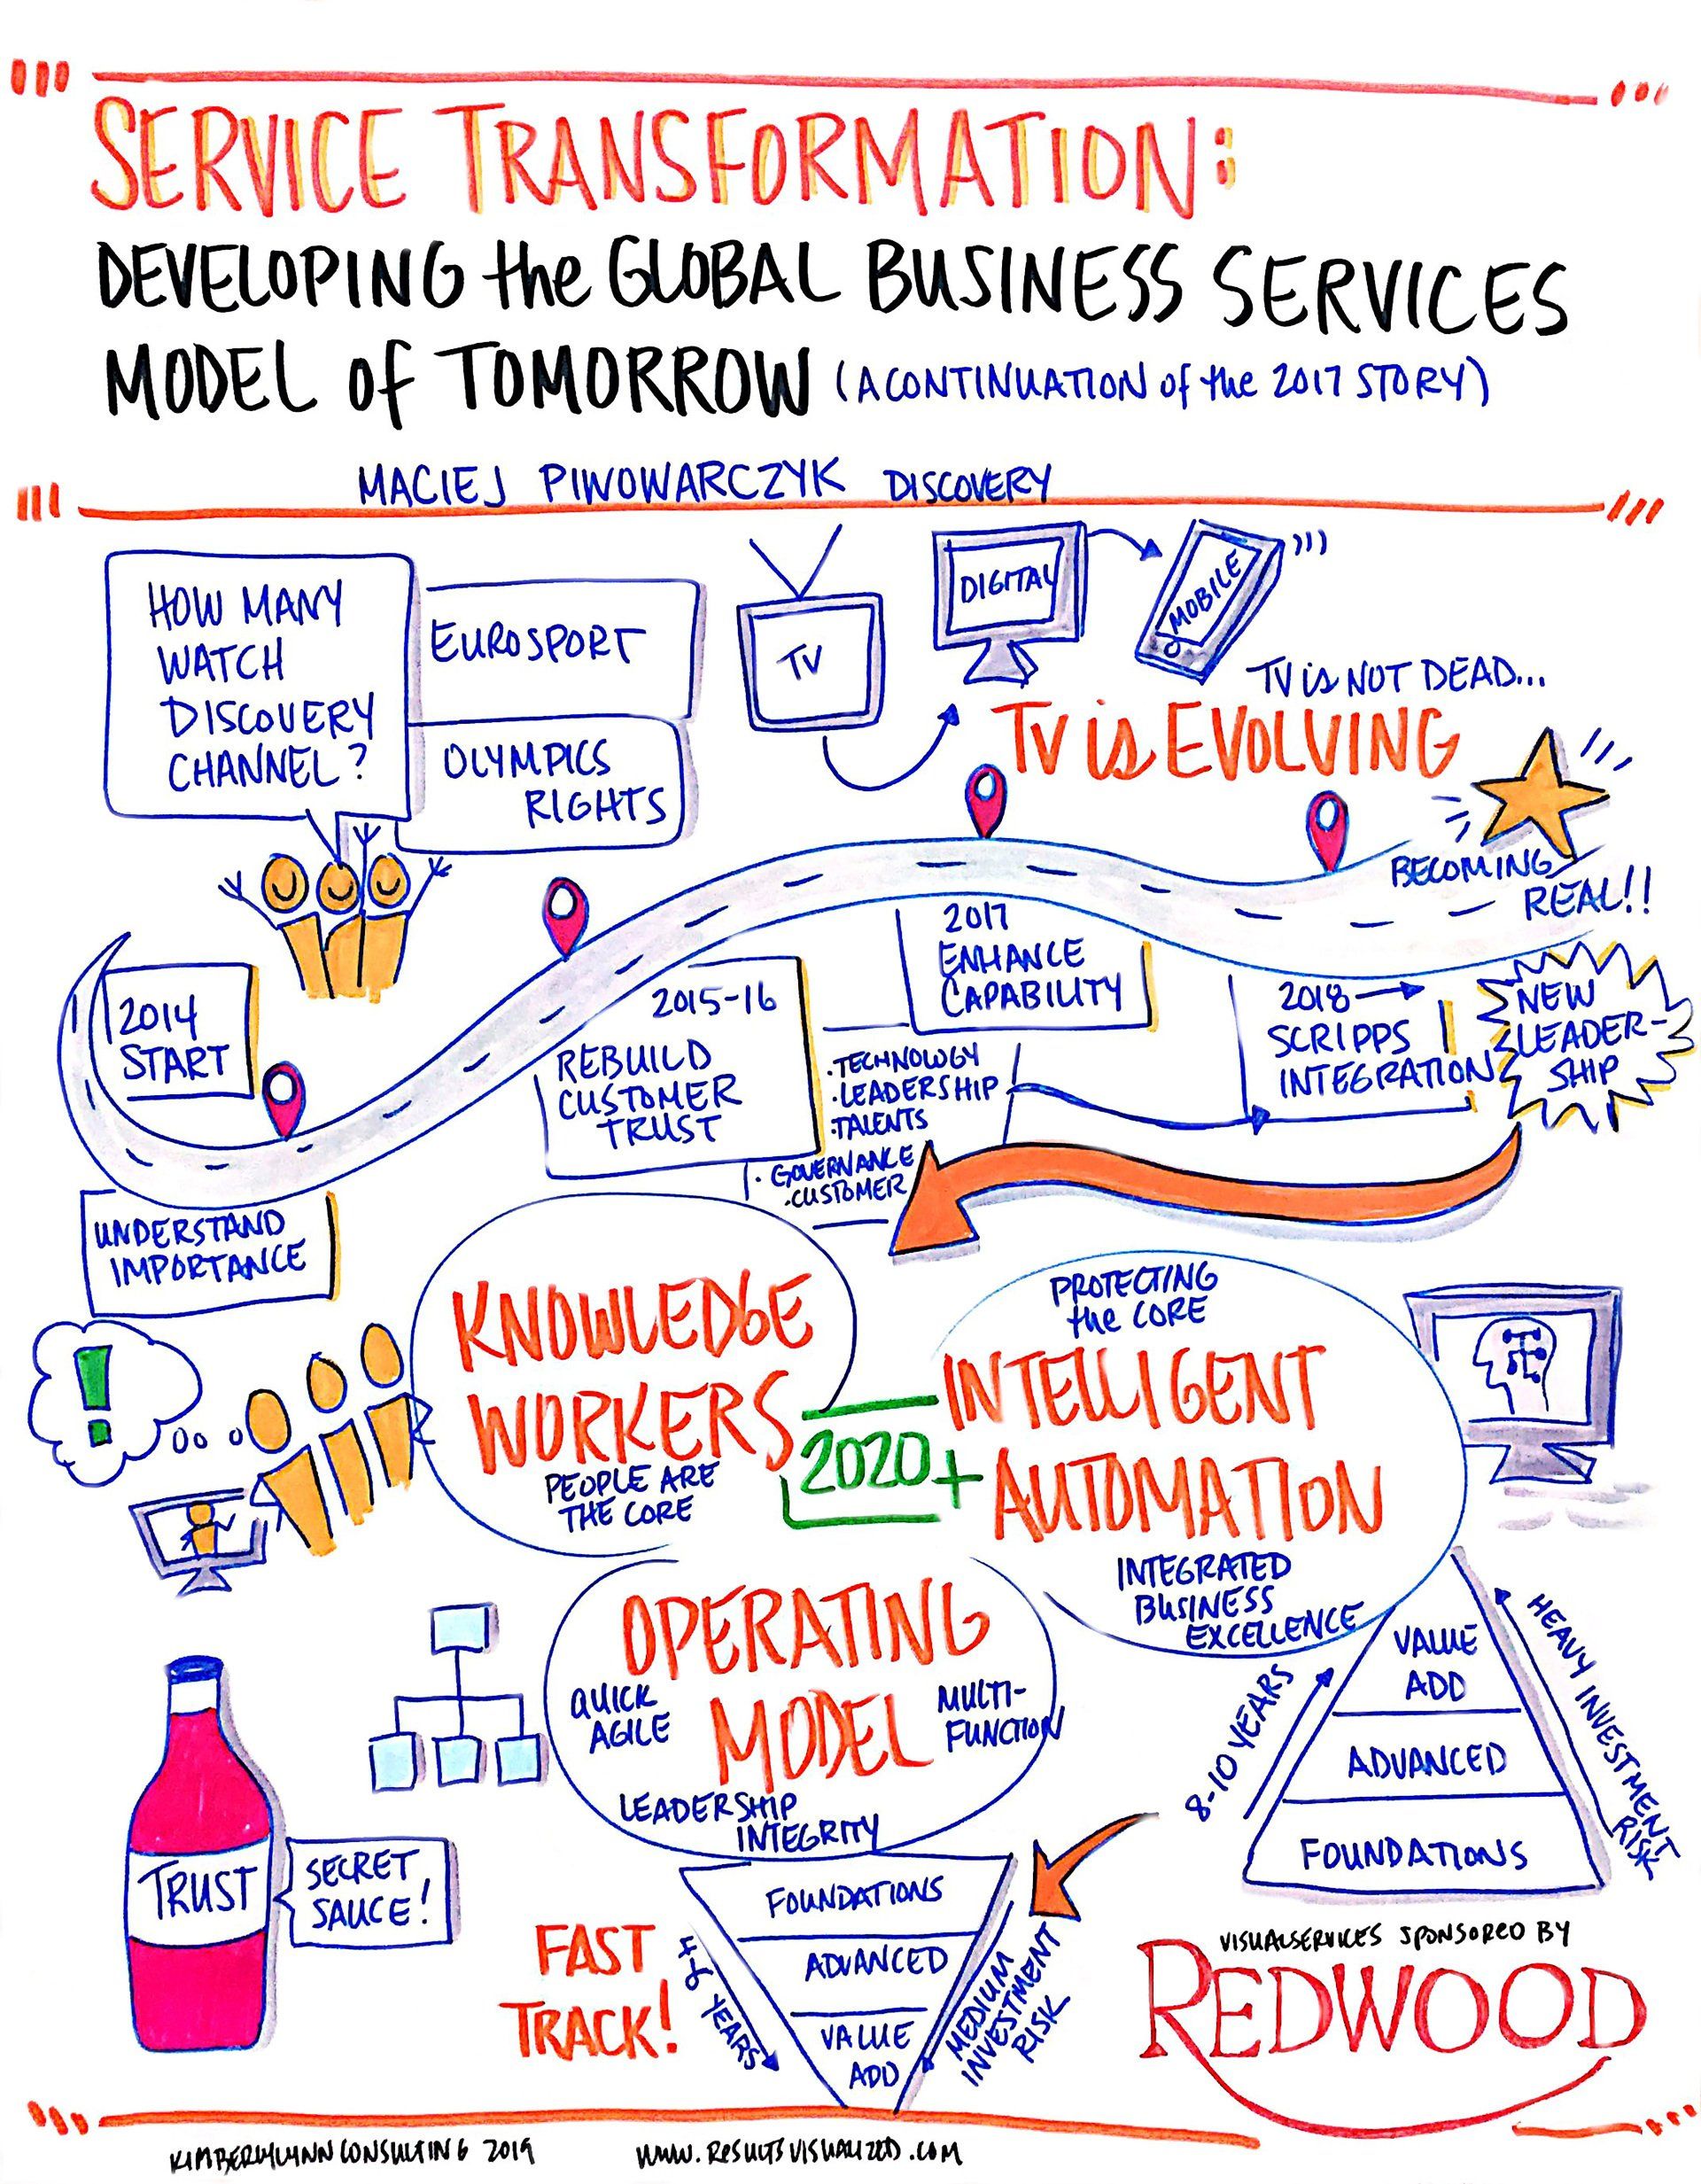 SERVICE TRANSFORMATION:
DEVELOPING the GLOBAL BUSINESS SERVICES
MODEL of TOMORROW (A CONTINUATION of the 2017 STORY)
MACIEJ PIWOWARCZYK DISCOVERY
HOW MANY
WATCH
DISCOVERY
CHANNEL?
EUROSPORT
OLYMPICS
RIGHTS
TV
DIGITAL
MOBILE
TV is NOT DEAD...
TV is EVOLVING
BECOMING
REAL!!
2014
START
UNDERSTAND
IMPORTANCE
2015-16
REBUILD
CUSTOMER
TRUST
2017
ENHANCE
CAPABILITY
.TECHNOLOGY
.LEADERSHIP
.TALENTS
. GOVERNANCE
.CUSTOMER
2018
SCRIPPS
INTEGRATION
NEW
LEADER-
SHIP
!
KNOWLEDGE
WORKERS
PEOPLE ARE
THE CORE
2020+
PROTECTING
the CORE
INTELLIGENT
AUTOMATION
INTEGRATED
BUSINESS
EXCELLENCE
OPERATING
MODEL
QUICK
AGILE
MULTI-
FUNCTION
LEADERSHIP
INTEGRITY
TRUST
SECRET
SAUCE!
8-10 YEARS
VALUE
ADD
ADVANCED
FOUNDATIONS
HEAVY INVESTMENT
RISK
FAST
TRACK!
4-6 YEARS
FOUNDATIONS
ADVANCED
VALUE
ADD
MEDIUM
INVESTMENT
RISK
VISUAL SERVICES SPONSORED BY
REDWOOD
KIMBERLYLYNN CONSULTING 2019
WWW.RESULTSVISUALIZED.COM